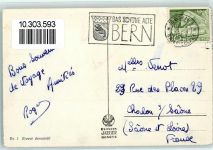 10.303.593
DAS SCHÖNE ALTE
BERN
Bons Souvenirs
de Voyage
Amitiés
Roger
Mlles Venot
23 Rue des Places 23
Chalon s/ Saône
(Saône et Loire)
France
JAEGER
GENÈVE